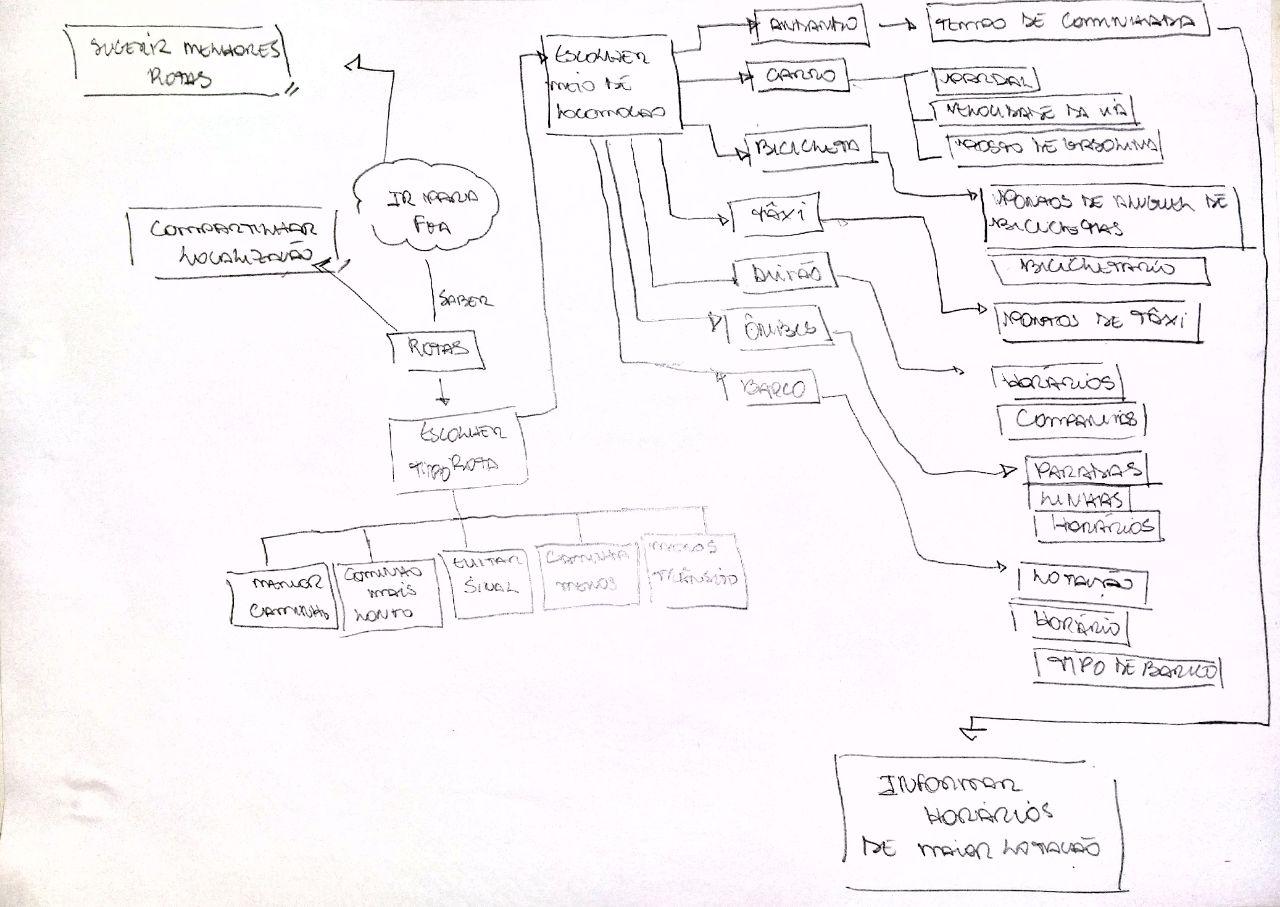 SUGERIR MELHORES
ROTAS
IR PARA
FOA
COMPARTILHAR
LOCALIZAÇÃO
SABER
ROTAS
ESCOLHER
TIPO ROTA
CAMINHO
CAMINHO
MAIS
LONGO
EVITAR
SINAL
CAMINHA
MENOS
MENOS
TRÂNSITO
ESCOLHER
MEIO DE
LOCOMOÇÃO
ANDANDO
TEMPO DE CAMINHADA
CARRO
PARDAL
VELOCIDADE DA VIA
POSTO DE GASOLINA
BICICLETA
PONTOS DE ALUGUEL DE
BICICLETAS
BICICLETARIO
TÁXI
PONTOS DE TÁXI
AVIÃO
HORÁRIOS
COMPANHIAS
ÔNIBUS
PARADAS
LINHAS
HORÁRIOS
BARCO
LOTAÇÃO
HORÁRIO
TIPO DE BARCO
INFORMAR
HORÁRIOS
DE MAIOR LOTAÇÃO